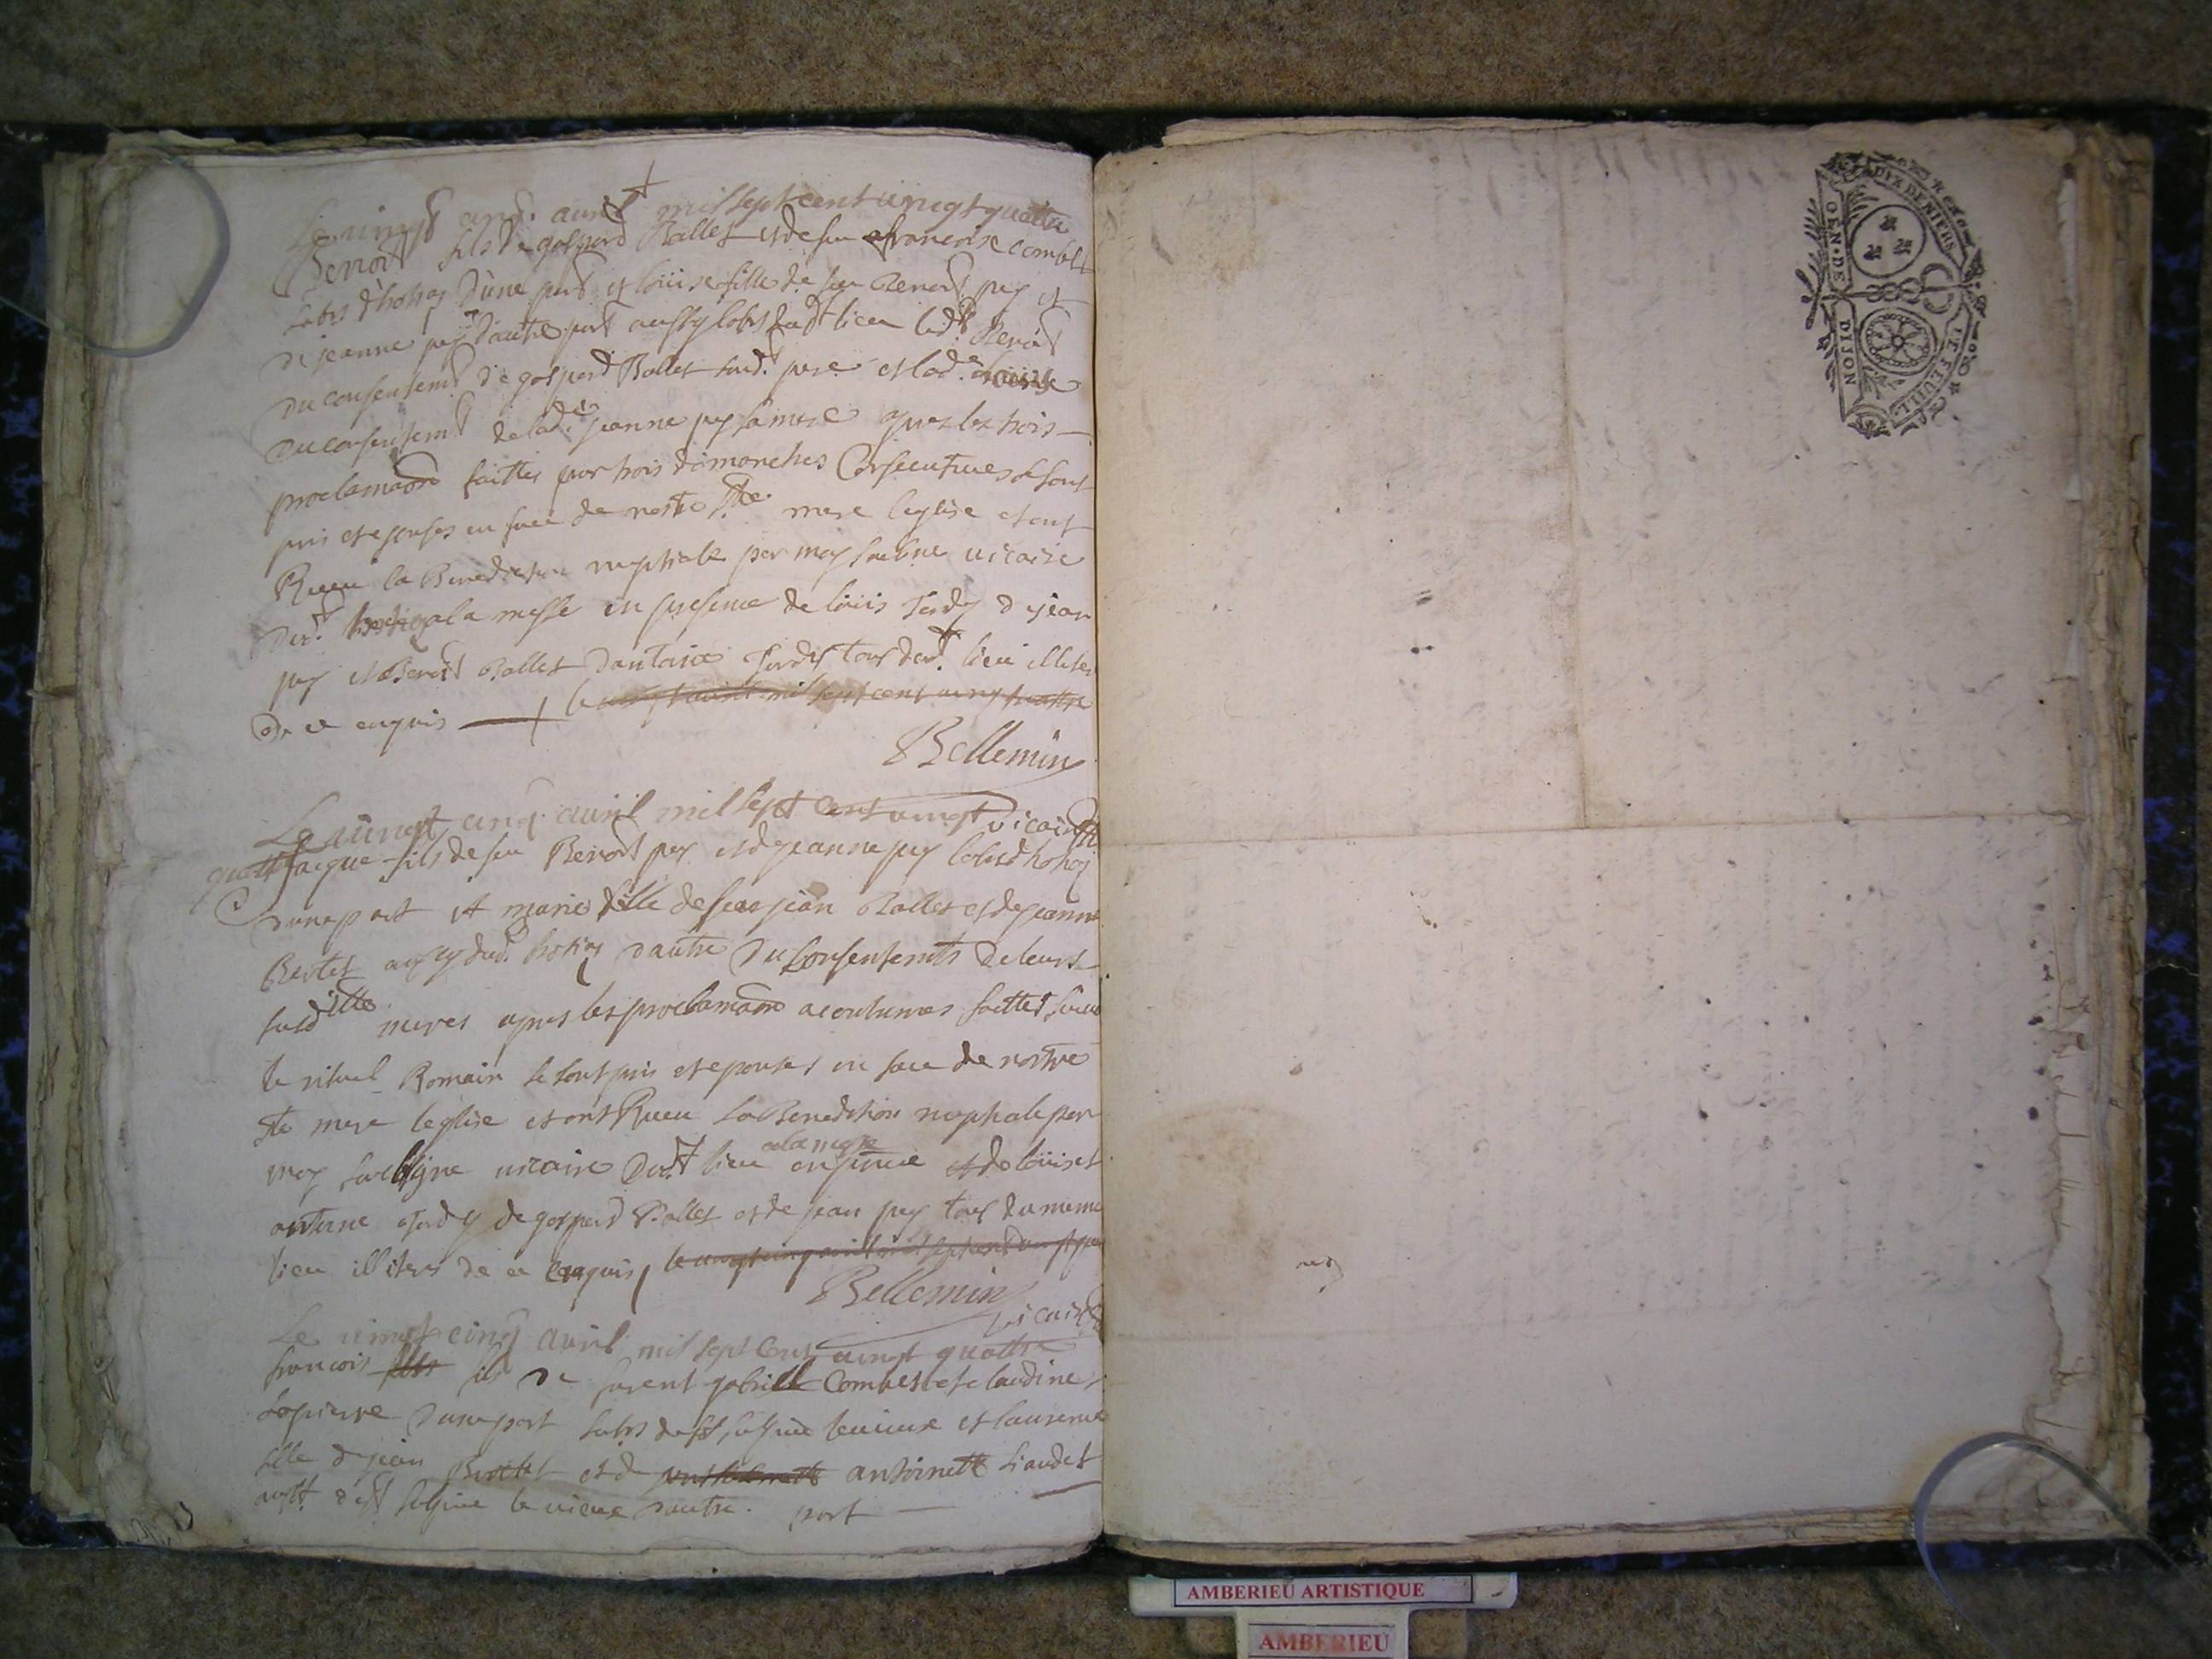 Le vingt cinq. avril mil sept cent vingt quattre
Benoit fils de gaspard Ballet et de feu francoise Combet
labrs d'hotias d'une part et loüise fille de feu Benoit puy et
de jeanne puy d'autre part aussy labrs dudt lieu ledt. Benoit
du consentemt de gaspard Ballet sudt. pere et lade. loüise
du consentemt de lade. jeanne puy sa mere apres les trois
proclamaons faittes par trois dimanches Consecutives se sont
pris et epousés en face de nostre Ste mere leglise et ont
Receu la Benediction nuptiale par moy soubné vicaire
dudt. a la messe en presence de loüis de jean
puy et Benoit Ballet dantoine tous dudt. lieu illiter
de ce enquis le vingt avril mil sept cent vingt quattre
Bellemin
vicaire
Le vingt cinq avril mil sept Cent vingt
quatt Jacque fils de feu Benoit puy et de jeanne puy labrs d'hotias
d'une part et marie fille de feu jean Ballet et de jeanne
Bertet aussy dudt. hotias d'autre du Consentemts de leurs
susdittes meres apres les proclamaons acoutumées faittes
le rituel Romain se sont pris et epousés en face de nostre
Ste mere leglise et ont Receu la Benediction nuptiale par
moy soubsigne vicaire dudt lieu a la messe en presence et de loüis et
antoine de gaspard Ballet et de jean puy tous du meme
lieu illiters de ce enquis le vingt cinq avril mil sept cent vingt
Bellemin
vicaire
Le vingt cinq avril mil sept Cent vingt quattre
francois fils de gabriel Combet et claudine
Lapierre d'une part labrs et laurence
fille de jean et de antoinette Liaudet
le vieux d'autre. part
DIX DENIERS
GEN. DE DIJON
LE FEUILL.
AMBERIEU ARTISTIQUE
AMBERIEU